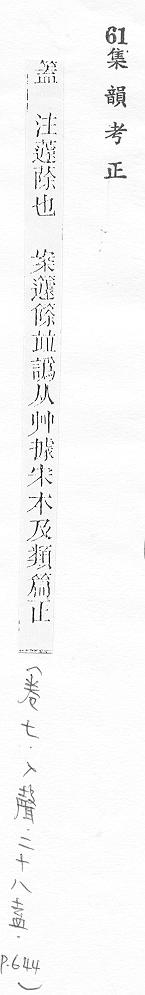 61集韻考正
篕　注蘧蒢也　案籧篨並譌从艸據宋本及類篇正
（卷七．入聲．二十八盍．P.644）